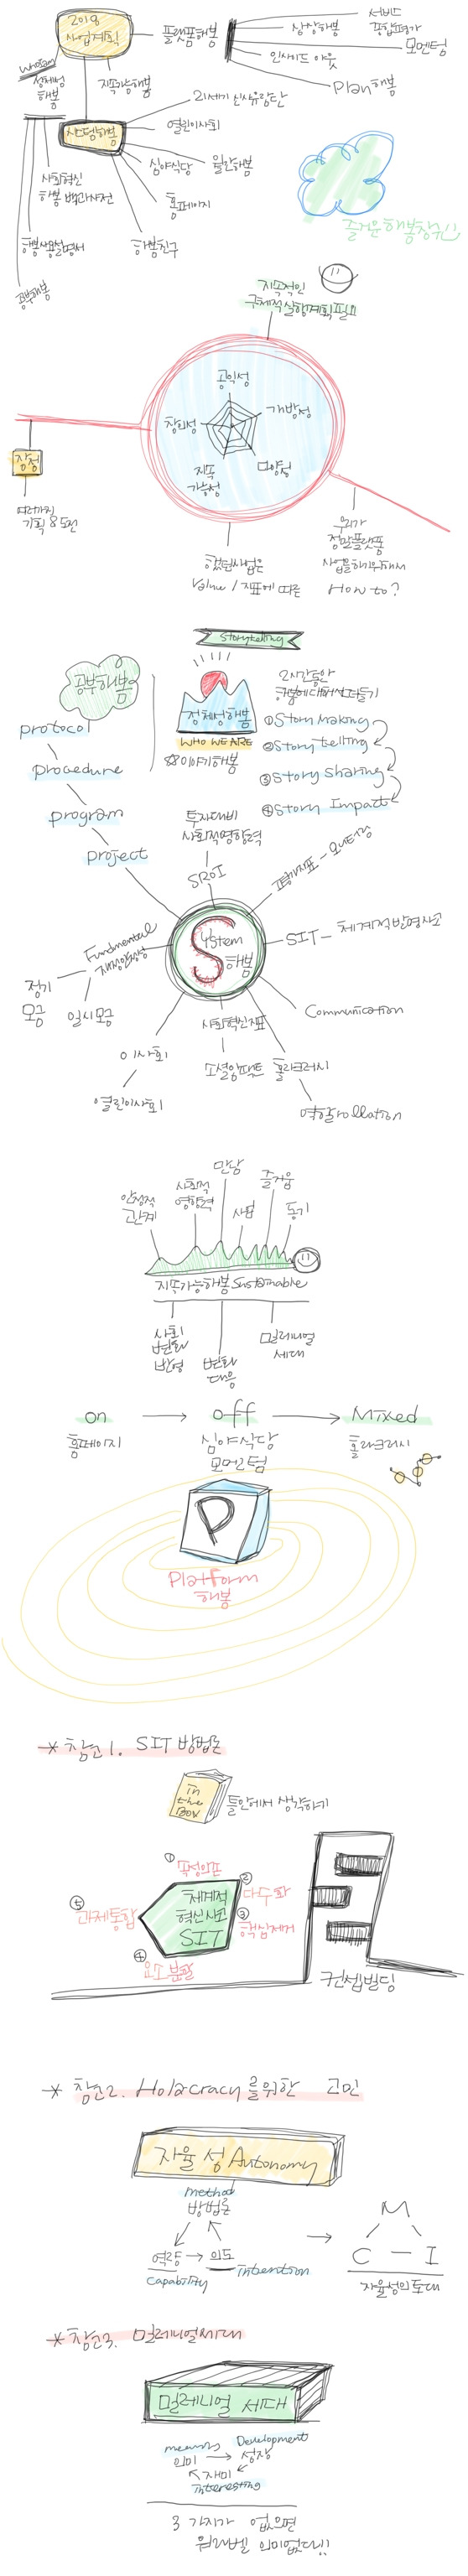 2018
사업계획
플랫폼해봄
서비드
종합평가
상상해봄
모멘텀
인사이드 아웃
Plan해봄
whoiam
정체성
해봄
지속가능해봄
시스템해봄
21세기 신사유람단
열린이사회
심야식당
월간해봄
홈페이지
해봄친구
사회혁신
해봄 백과사전
해봄사용설명서
공부해봄
즐거운 해봄장위
지속적인
구체적 실행계획필요
공익성
창의성
개방성
지속
가능성
다양성
장점
여러가지
기획 & 도전
했던사업은
Value / 지표에 따른
우리가
정말플랫폼
사업을하기위해서
How to?
Storytelling
공부해봄
protocol
procedure
program
project
정체성해봄
WHO WE ARE
☆이야기해봄
2시간동안
해봄에대해서만들기
① Story Making
② Story telling
③ Story sharing
④ Story Impact
투자대비
사회적영향력
SROI
평가지표 - 모니터링
System
해봄
SIT - 체계적발명사고
Fundmental
재정안정성
정기
모금
일시모금
Communication
이사회
열린이사회
사회혁신지표
소셜임팩트
홀라크러시
역할rollation
안정적
관계
사회적
영향력
만남
사업
즐거움
동기
지속가능해봄 Sustainable
사회
변화
반영
변화
대응
밀레니얼
세대
on → off → Mixed
홈페이지
심야식당
모멘텀
홀라크러시
P
Platform
해봄
* 참고1. SIT 방법론
in
the
BOX
틀안에서 생각하기
①
②
다수화
③
핵심제거
④
요소 분할
⑤
과제통합
체계적
혁신사고
SIT
컨셉빌딩
* 참고2. Holacracy를위한 고민
자율성 Autonomy
method
방법론
역량 → 의도
capability
intention
M
C - I
자율성의 토대
* 참고3. 밀레니얼세대
밀레니얼 세대
means
의미 → 성장
Development
재미
interesting
3 가지가 없으면
워라벨 의미없다!!